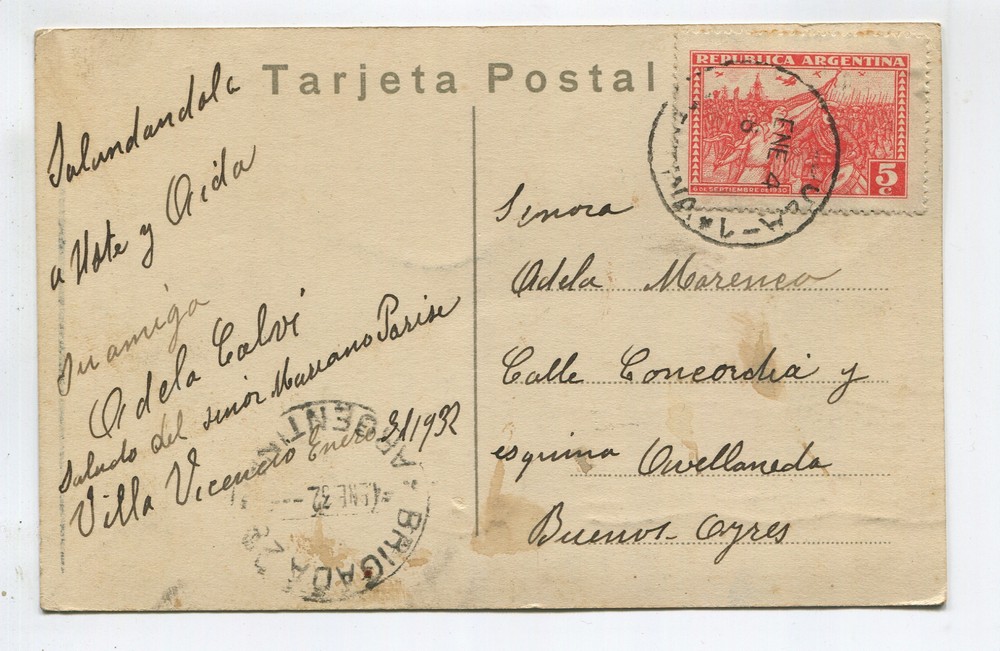 Tarjeta Postal
Saludandola
a Uste y Aida
Su amiga
Adela Calvi
Saludo del señor Mariano Parise
Villa Vicencio Enero 31 1932
REPUBLICA ARGENTINA
6 DE SEPTIEMBRE DE 1930
5 c.
ENE 4
Senora
Adela Marenco
Calle Concordia y
esquina Avellaneda
Buenos Ayres
ARGENTI
4 ENE 32
BRIGADA 2